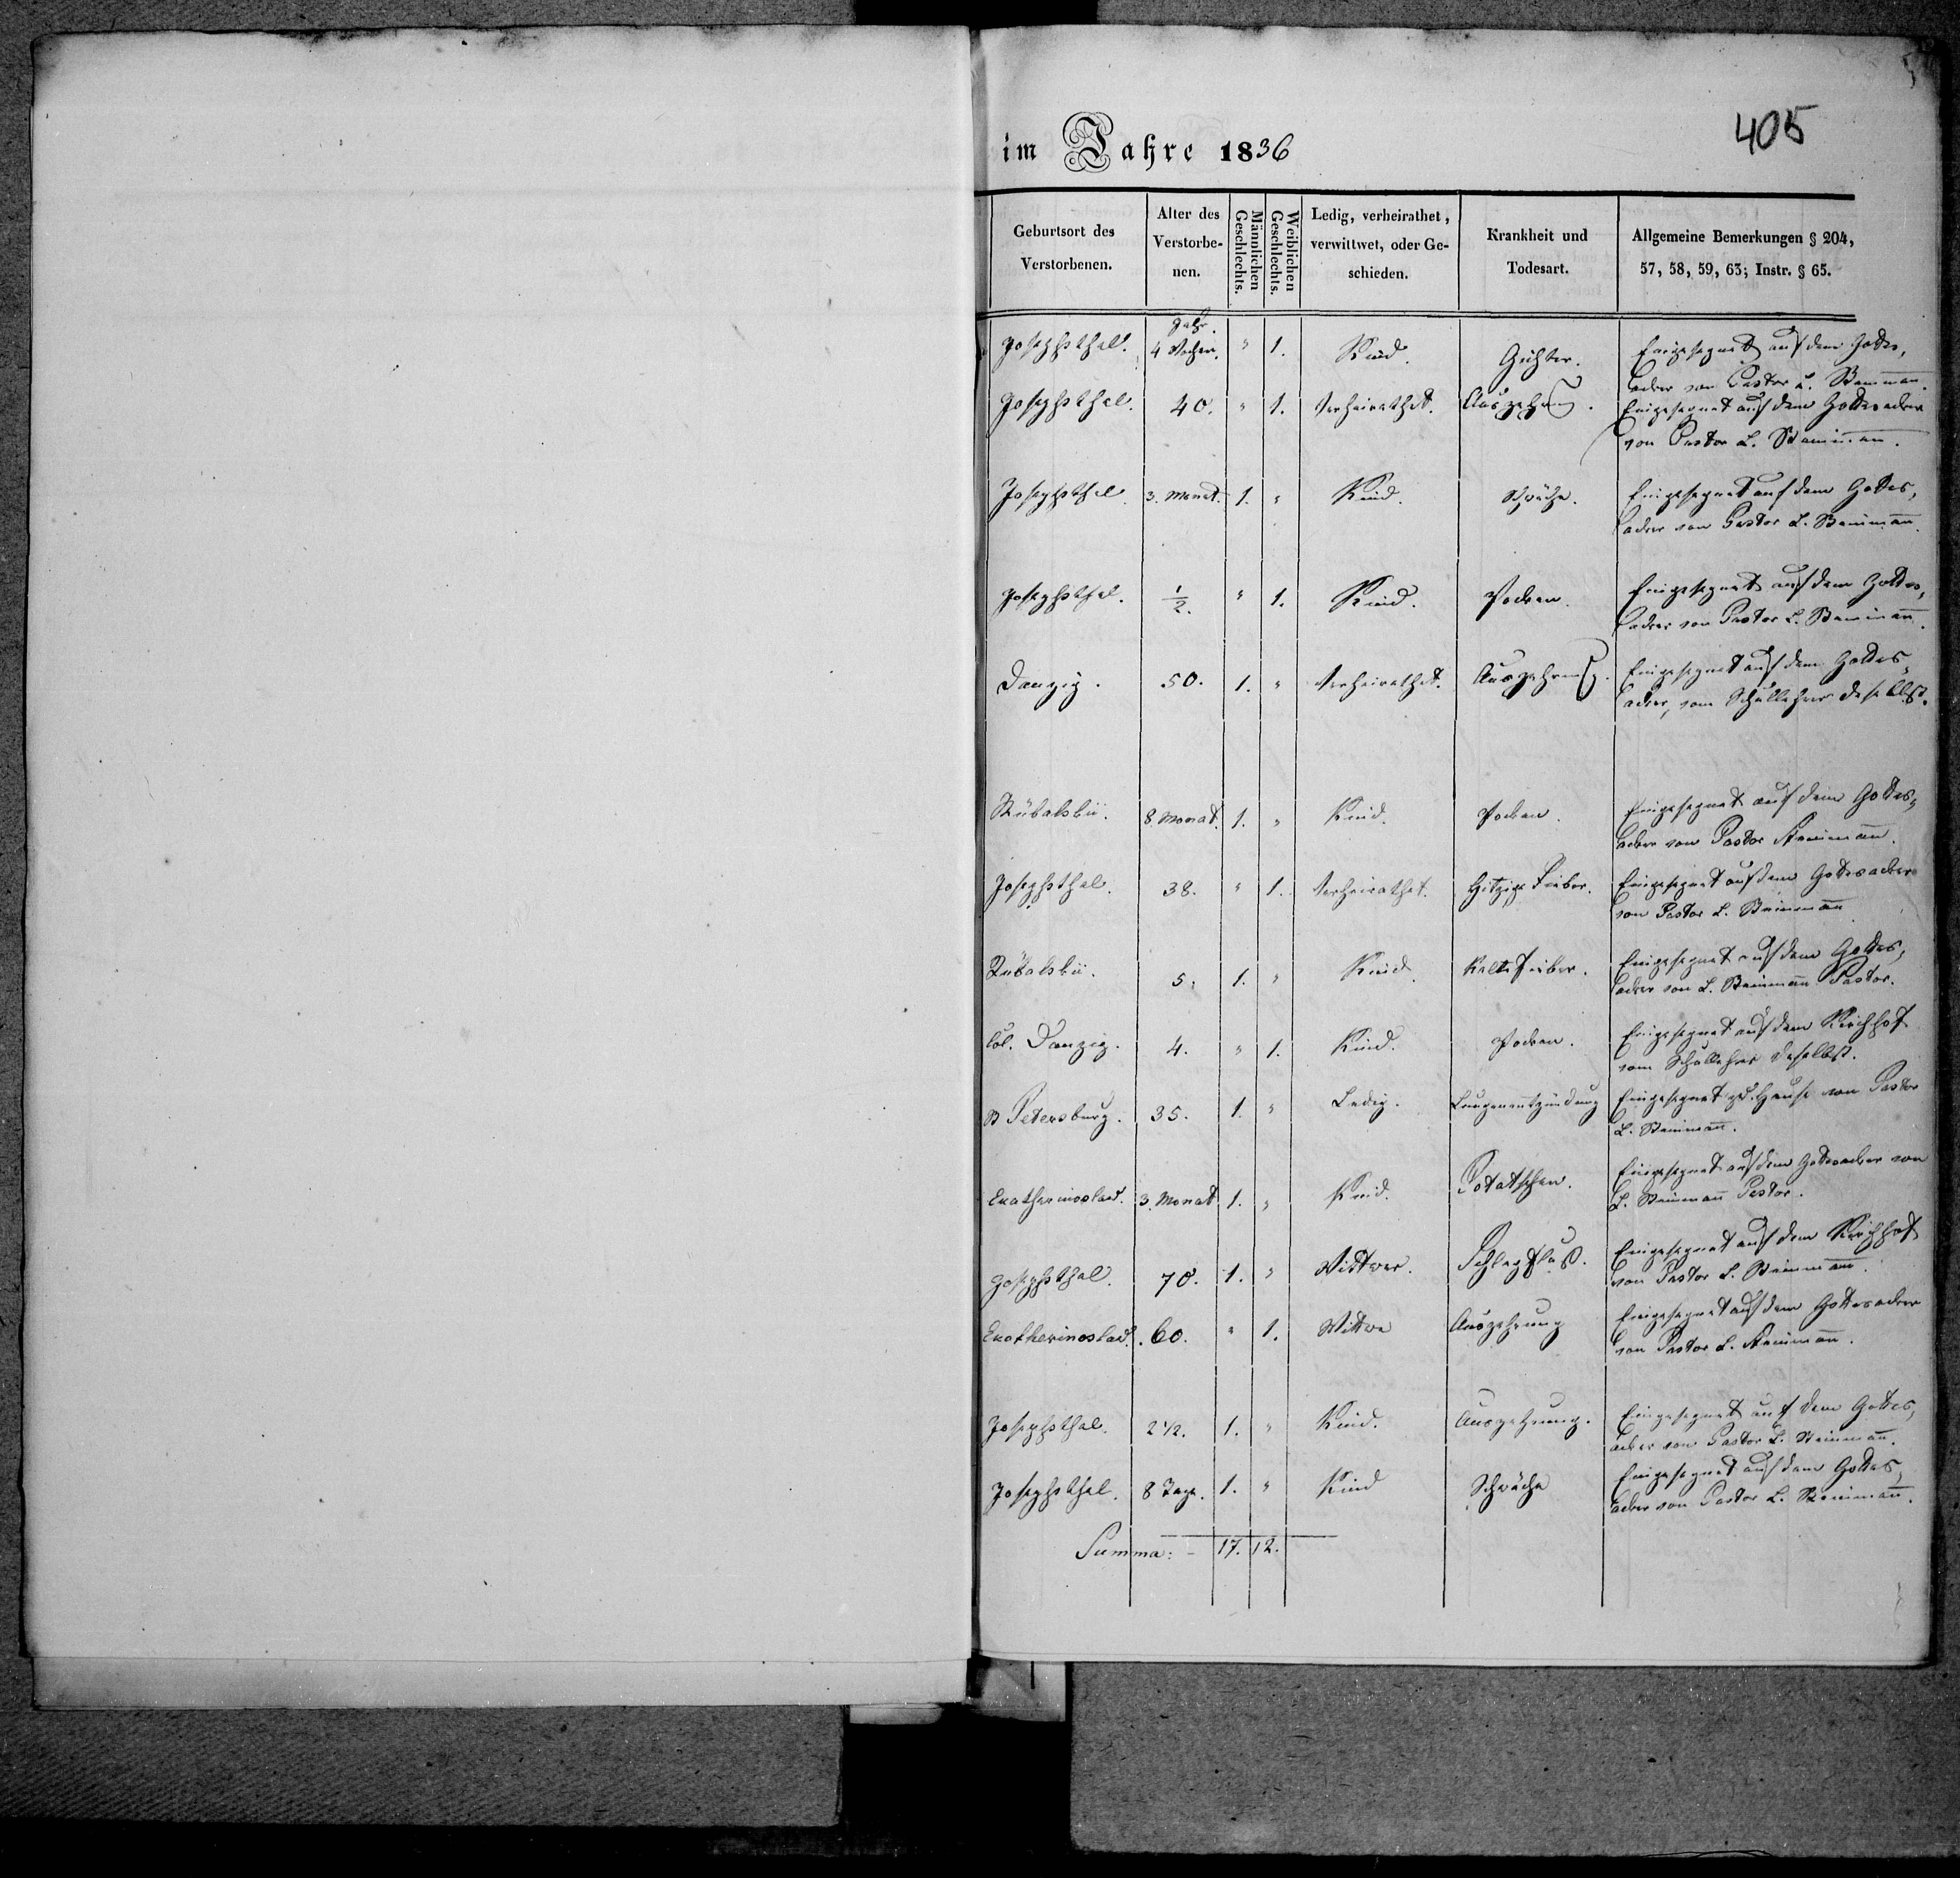 405
im Jahre 1836
Geburtsort des Verstorbenen. | Alter des Verstorbenen. | Männlichen Geschlechts. | Weiblichen Geschlechts. | Ledig, verheirathet, verwittwet, oder Geschieden. | Krankheit und Todesart. | Allgemeine Bemerkungen § 204, 57, 58, 59, 63; Instr. § 65.
Jahr.
Josephsthal. 4 Wochen. " 1. Kind. Gichter. Eingesegnet auf dem Gottes,
acker von Pastor L. Steinman̅.
Josephsthal. 40. " 1. Verheirathet. Auszehrung. Eingesegnet auf dem Gottesacker
von Pastor L. Steinman̅.
Josephsthal 3. Monat. 1. " Kind. Schwäche. Eingesegnet auf dem Gottes,
acker von Pastor L. Steinman̅.
Josephsthal. 1/2. " 1. Kind. Pocken. Eingesegnet auf dem Gottes,
acker von Pastor L. Steinman̅.
Danzig. 50. 1. " Verheirathet. Auszehrung. Eingesegnet auf dem Gottes,
acker, vom Schullehrer daselbst.
8. Monat. 1. " Kind. Pocken. Eingesegnet auf dem Gottes,
acker von Pastor Steinman̅.
Josephsthal. 38. " 1. Verheirathet. Hitzige Fieber. Eingesegnet auf dem Gottesacker
von Pastor L. Steinman̅
5. 1. " Kind. Kalte Fieber. Eingesegnet auf dem Gottes,
acker von L. Steinman̅ Pastor.
Col. Danzig. 4. " 1. Kind. Pocken. Eingesegnet auf dem Kirchhof
vom Schullehrer daselbst.
St Petersburg. 35. 1. " Ledig. Lungenentzündung Eingesegnet zu Hause von Pastor
L. Steinman̅.
Ekatherinoslav. 3. Monat 1. " Kind. Eingesegnet auf dem Gottesacker von
L. Steinman̅ Pastor.
Josephsthal. 70. 1. " Wittwer. Schlagfluß. Eingesegnet auf dem Kirchhof
von Pastor L. Steinman̅.
Ekatherinoslav. 60. " 1. Wittwe Auszehrung Eingesegnet auf dem Gottesacker
von Pastor L. Steinman̅.
Josephsthal. 2 1/2. 1. " Kind. Auszehrung. Eingesegnet auf dem Gottes,
acker von Pastor L. Steinman̅.
Josephsthal. 8 Tage. 1. " Kind Schwäche Eingesegnet auf dem Gottes,
acker von Pastor L. Steinman̅.
Summa: - 17. 12.